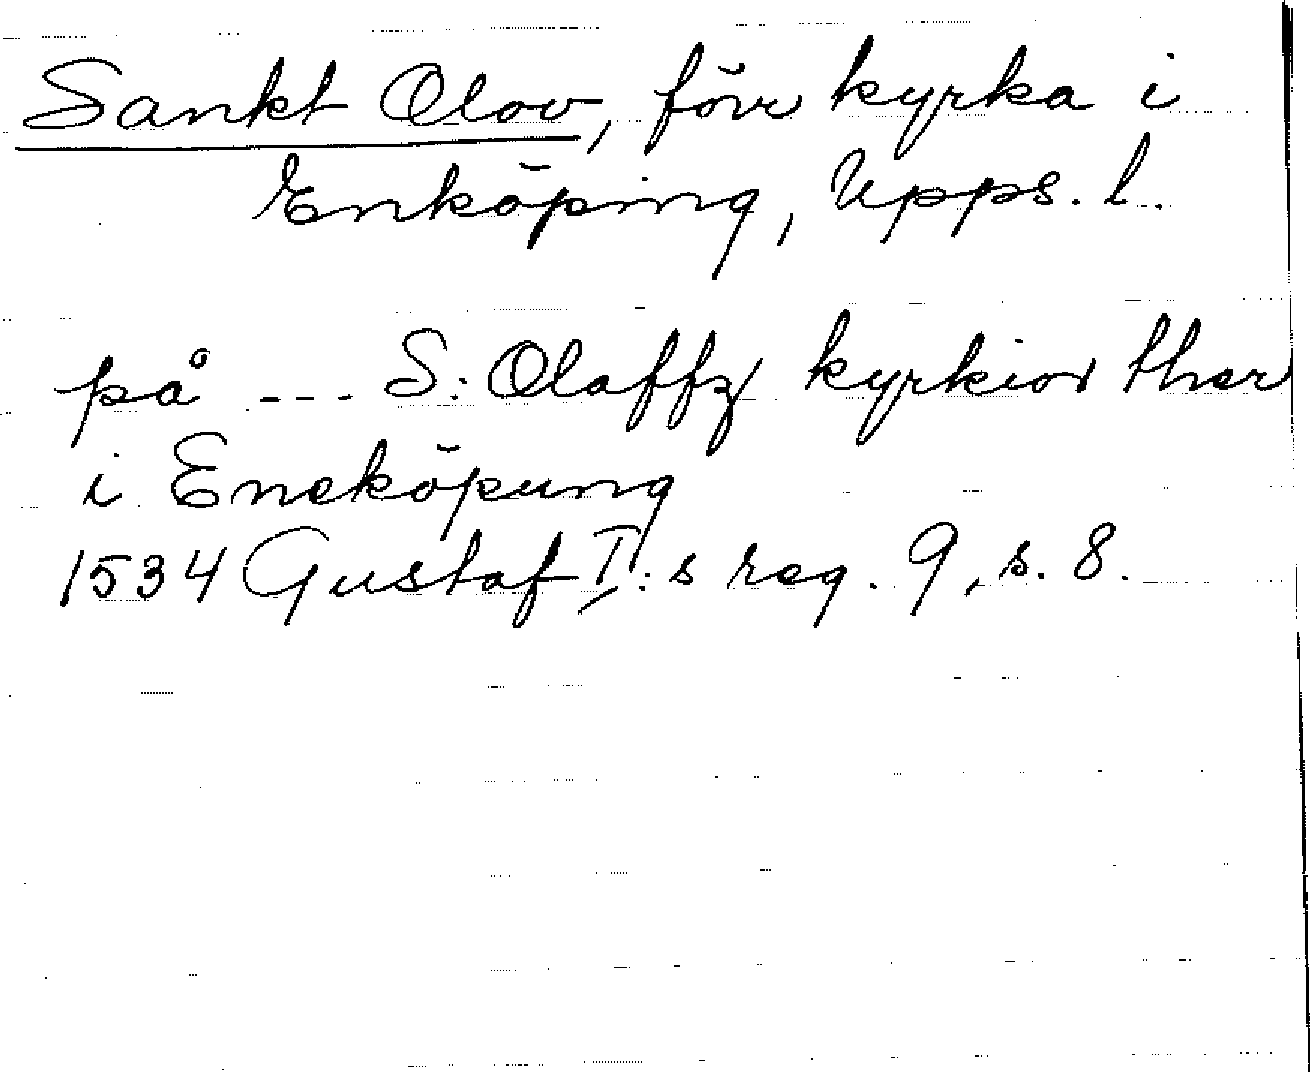 Sankt Olov, förr kyrka i
Enköping, Upps. l.
på --- S. Olaffz kyrkior ther
i Eneköpung
1534 Gustaf I:s reg. 9, s. 8.